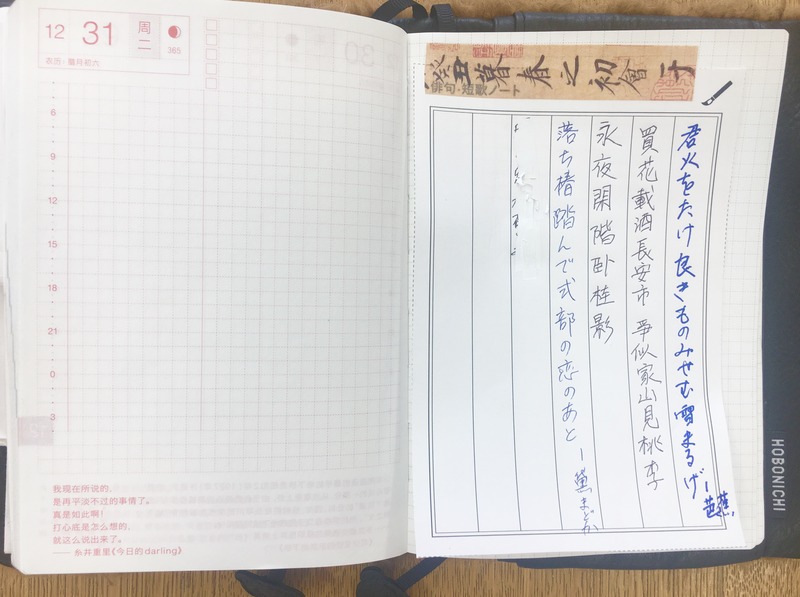 12 31 周二 365
农历·腊月初六
6
9
12
15
18
21
0
3
我现在所说的，
是再平淡不过的事情了。
真是如此啊！
打心底是怎么想的，
就这么说出来了。
—— 糸井重里《今日的darling》
癸丑暮春之初會于
俳句·短歌ノート
君火をたけ 良きものみせむ 雪まるげ ー芭蕉
買花載酒長安市 爭似家山見桃李
永夜閑階卧桂影
落ち椿踏んで式部の恋のあと ー黛まどか
HOBONICHI